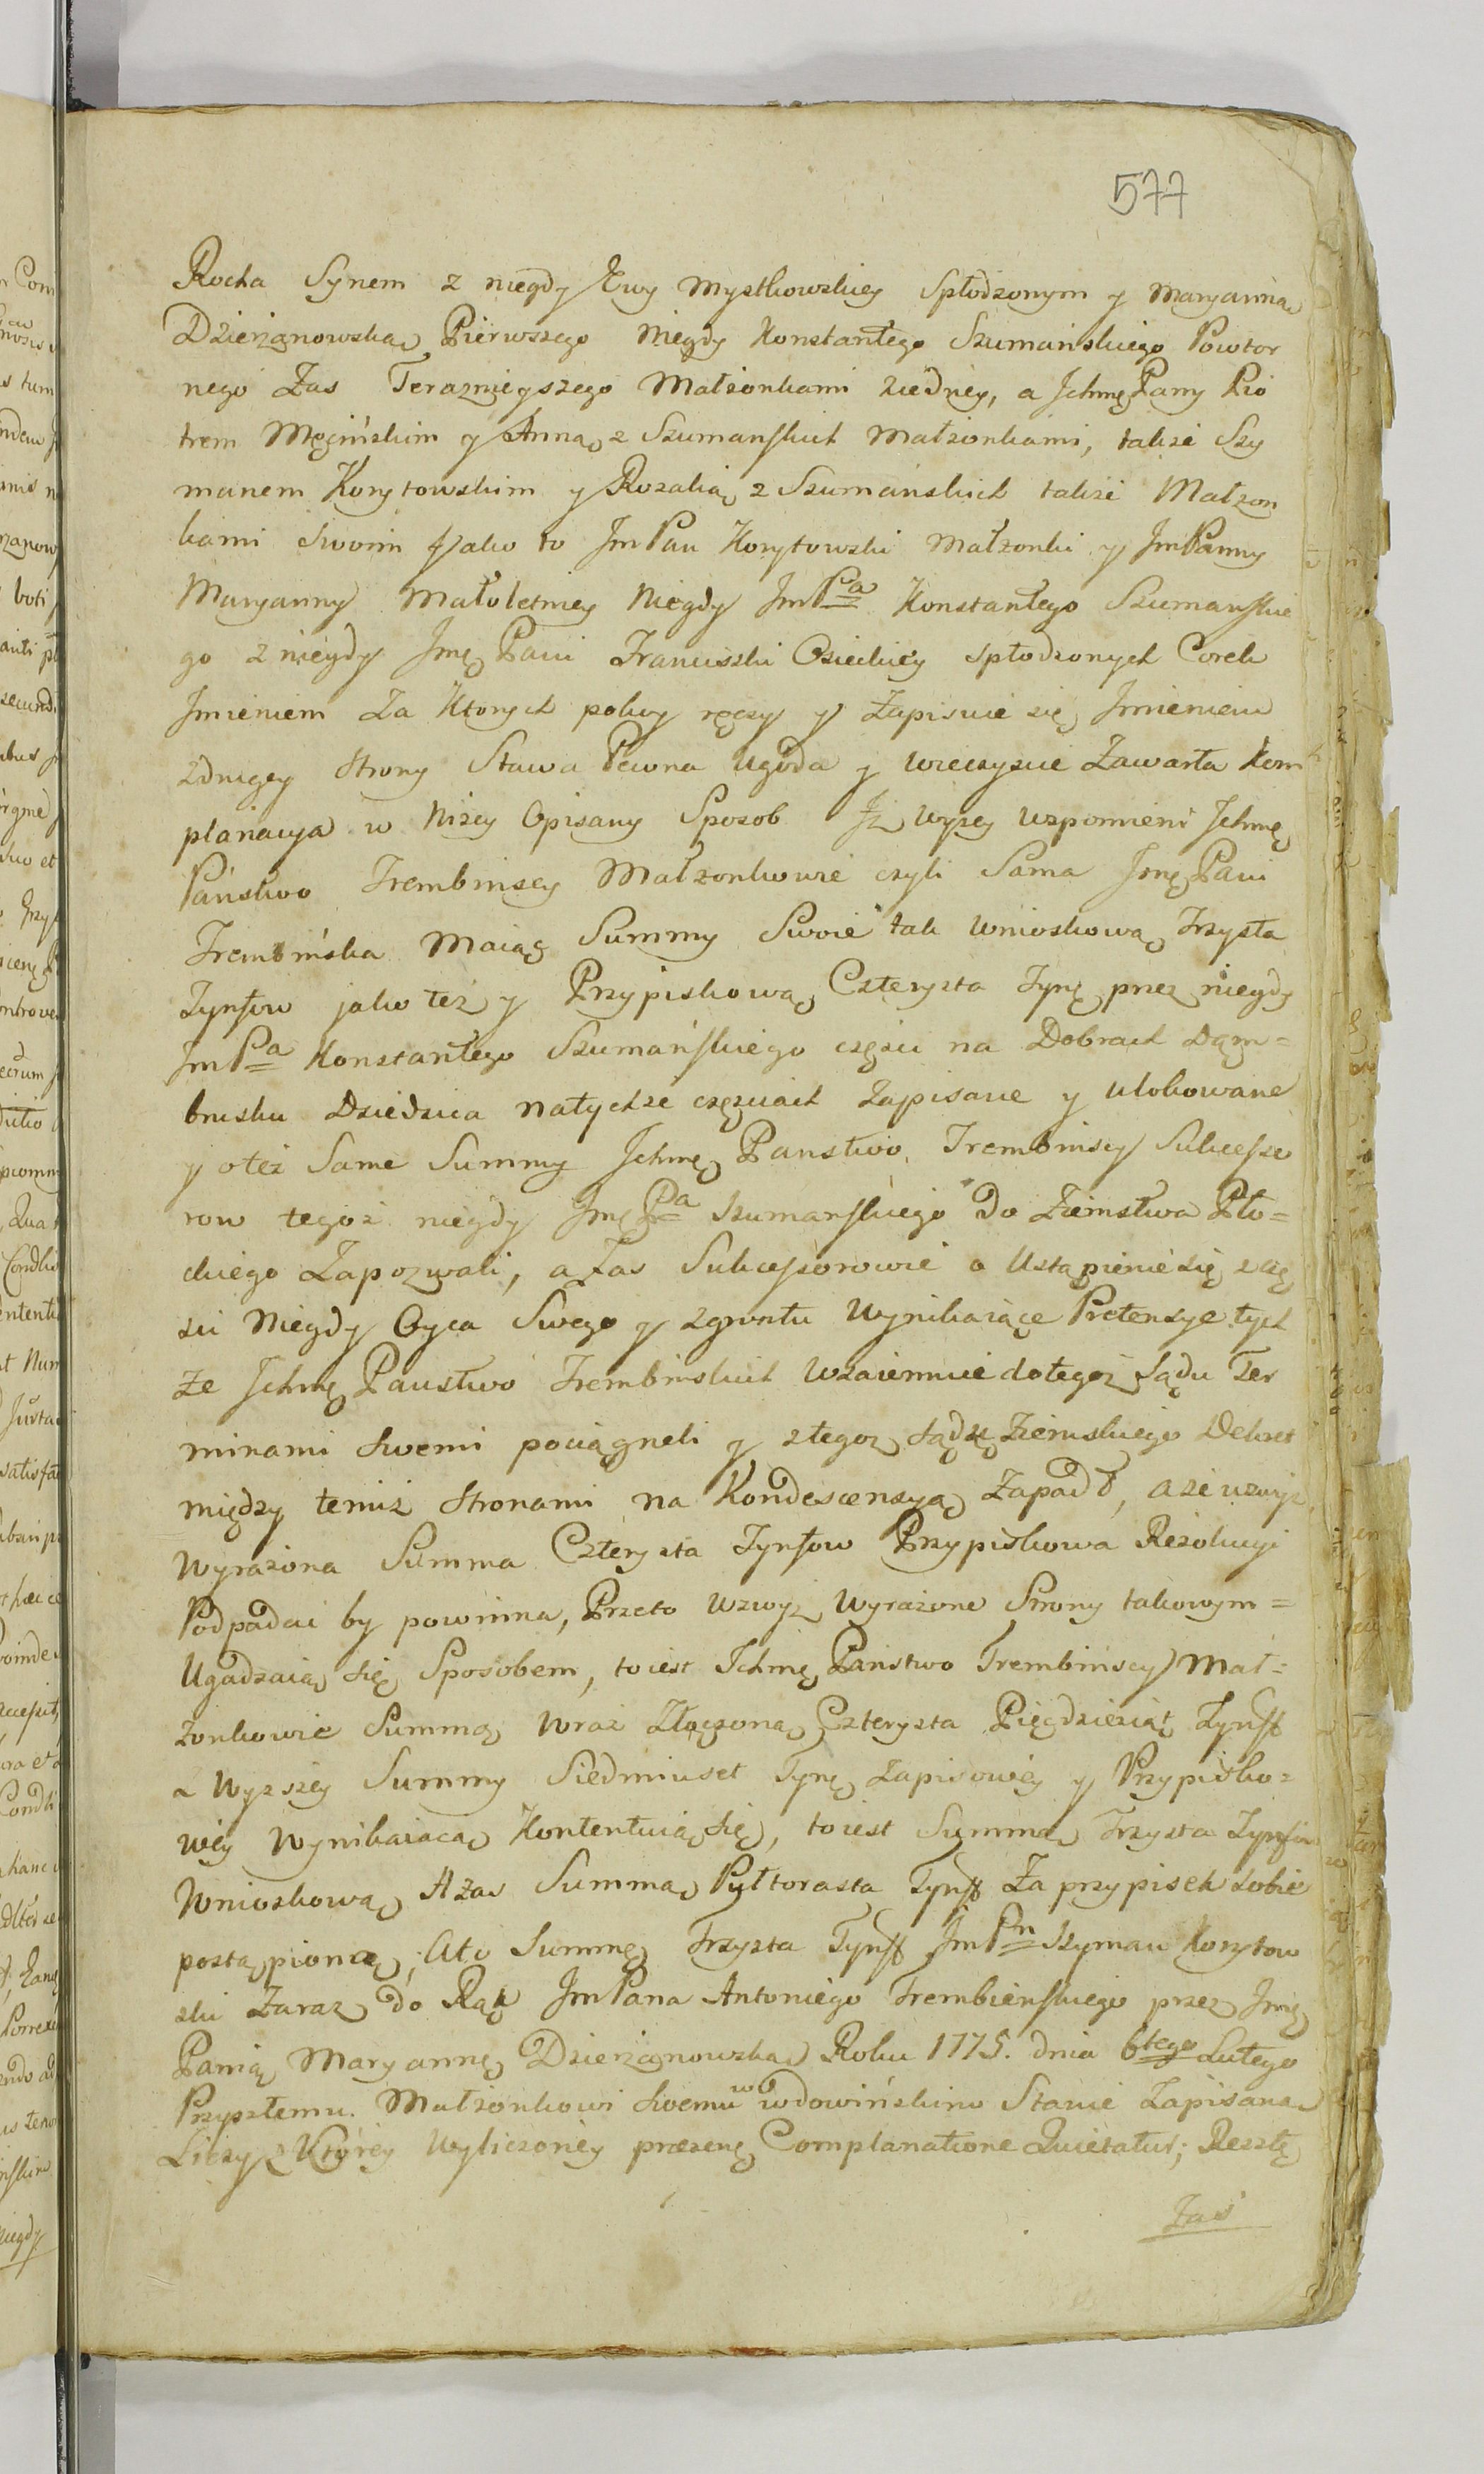 577
Rocha Synem z niegdy Ewy Mystkowskiey Spłodzonym y Maryanną
Dzierzanowską, Pierwszego Niegdy Konstantego Szumańskiego Powtor
nego Zas Teraznieyszego Małżonkami ziedney, a Jchmę Pany Pio
trem Męcińskim y Anną z Szumanskich Małzonkami, takze Szy
manem Korytowskim y Rozalią z Szumańskich takze Małzon
kami Swoim Jako to JmPan Korytowski Małzonki y JmPanny
Maryanny Małoletniey Niegdy JmPa Konstantego Szumanskie
go z niegdy Jmę Pani Franciszki Osieckiey spłodzonych Corek
Jmieniem Za Ktorych poki y ręczy y Zapisuie się Jmieniem
zdrugey Strony Stawa Pewna Ugoda y wieczyscie Zawarta Kom
planacya w Nizey Opisany Sposob Jz wyzey wspomieni Jchmę
Państwo Trembinscy Małzonkowie czyli Sama Jmę Pani
Trembińska Maiąc Summy Swoie tak wnioskową Trzysta
Tynfow jako też y Przypiskową Czterysta Tynę przez niegdy
JmPa Konstantego Szumańskiego częsci na Dobrach Dąm=
brusku Dziedzica natychże częsciach Zapisane y ulokowane
y oteż Same Summy Jchmę Panstwo Trembinscy Sukcesso
row tegoż niegdy Jmę Pa Szumanskiego Do Ziemstwa Pło=
ckiego Zapozwali, a Zas Sukcessorowie o Ustąpienie się z czę
sci Niegdy Oyca Swego y zgruntu Wynikaiące Pretensye tych
że Jchmę Panstwo Trembinskich Wzaiemnie dotegoz Sądu Ter
minami Swemi pociągneli y ztegoz Sądu Ziemskiego Dekret
między temiz Stronami na Kondescensyą Zapadł, a ze wzwyz
Wyrazona Summa Czterysta Tynfow Przypiskowa Rezolucyi
Podpadac by powinna, Przeto Wzwyz Wyrażone Strony takowym=
Ugadzaią się Sposobem, toiest Jchmę Państwo Trembinscy Mał=
zonkowie Summą Wraz Złączoną Czterysta Pięcdziesiąt Tynff
z Wyzszey Summy Siedmiuset Tynę Zapisowey y Przypisko=
wey Wynikaiacą Kontentuią się, toiest Summą Trzysta Tynfow
Wnioskową A zas Summą Pułtorasta Tynff Za przypisek sobie
postąpioną; Ato Summę Trzysta Tynff JmPn Szyman Korytow
ski Zaraz do Rąk JmPana Antoniego Trembienskiego przez Jmę
Panią Maryannę Dzierżanowską Roku 1775. dnia 6tego Lutego
Przyszłemu Małzonkowi Swemu w wdowińskim Stanie Zapisaną
Liczy z Ktorey Wyliczoney præsenę Complanatione Quietatur; Resztę
Zaś